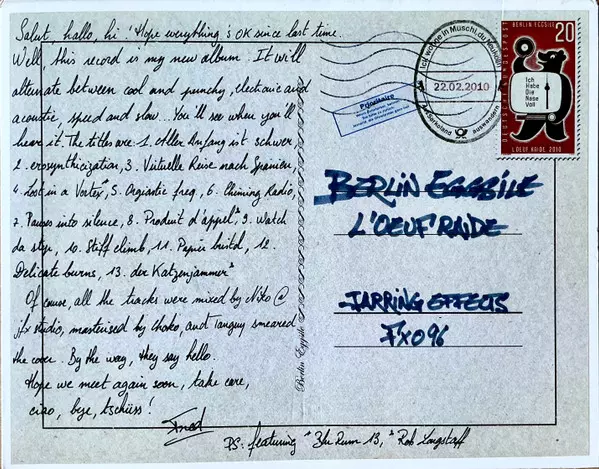 Salut, hallo, hi! Hope everything's OK since last time.
Well, this record is my new album. It will
alternate between cool and punchy, electronic and
acoustic, speed and slow... You'll see when you'll
hear it. The titles are: 1. Aller Anfang ist schwer,
2. erosynthicization, 3. Virtuelle Reise nach Spanien,
4. Lost in a Vortex*, 5. Orgiastic freq, 6. Chiming Radio,
7. Pauses into silence, 8. Produit d'appel² 9. Watch
da step, 10. Stiff climb, 11. Papier buitd, 12.
Delicate burns, 13. der Katzenjammer²
Of course, all the tracks were mixed by Nito @
jfx studio, masterised by Choko, and Tanguy smeared
the cover. By the way, they say hello.
Hope we meet again soon, take care,
ciao, bye, tschüss!
Fred
PS: featuring * Blu Rum 13, ² Rob Longstaff
Berlin Eggsile
Prioritaire
Ich wohne in Muschi du Neuköln
22.02.2010
auswandern
BERLIN EGGSILE
20
DEUTSCHE EGGSPOST
Ich
Habe
Die
Nase
Voll
L'OEUF RAIDE 2010
BERLIN EGGSILE
L'OEUF RAIDE
JARRING EFFECTS
Fx096